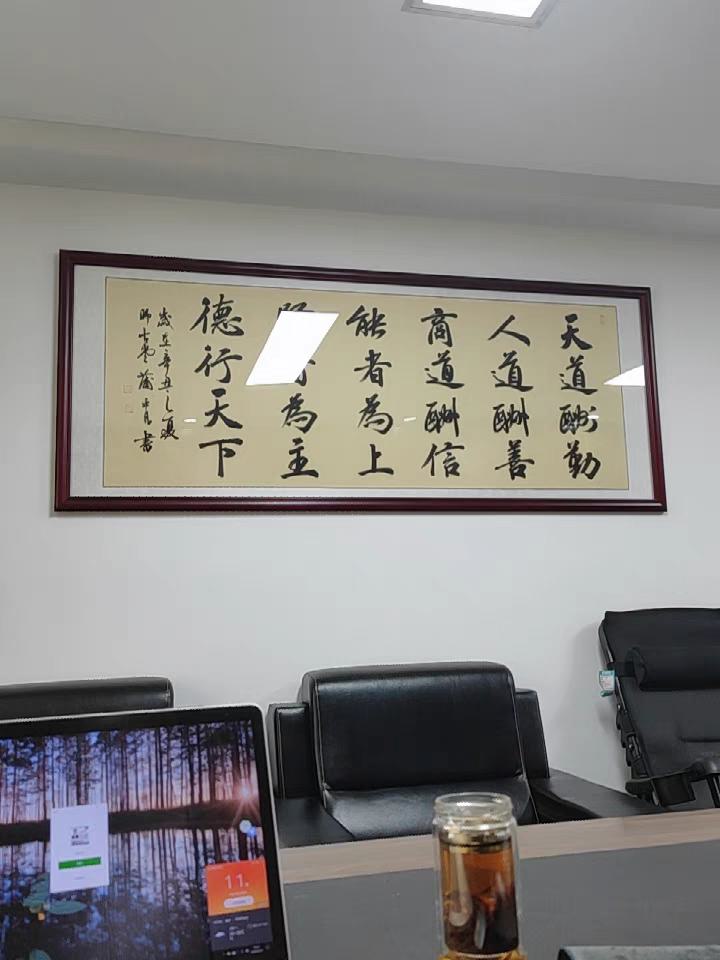 天道酬勤
人道酬善
商道酬信
能者為上
為主
德行天下
歲在辛丑之夏
書
11